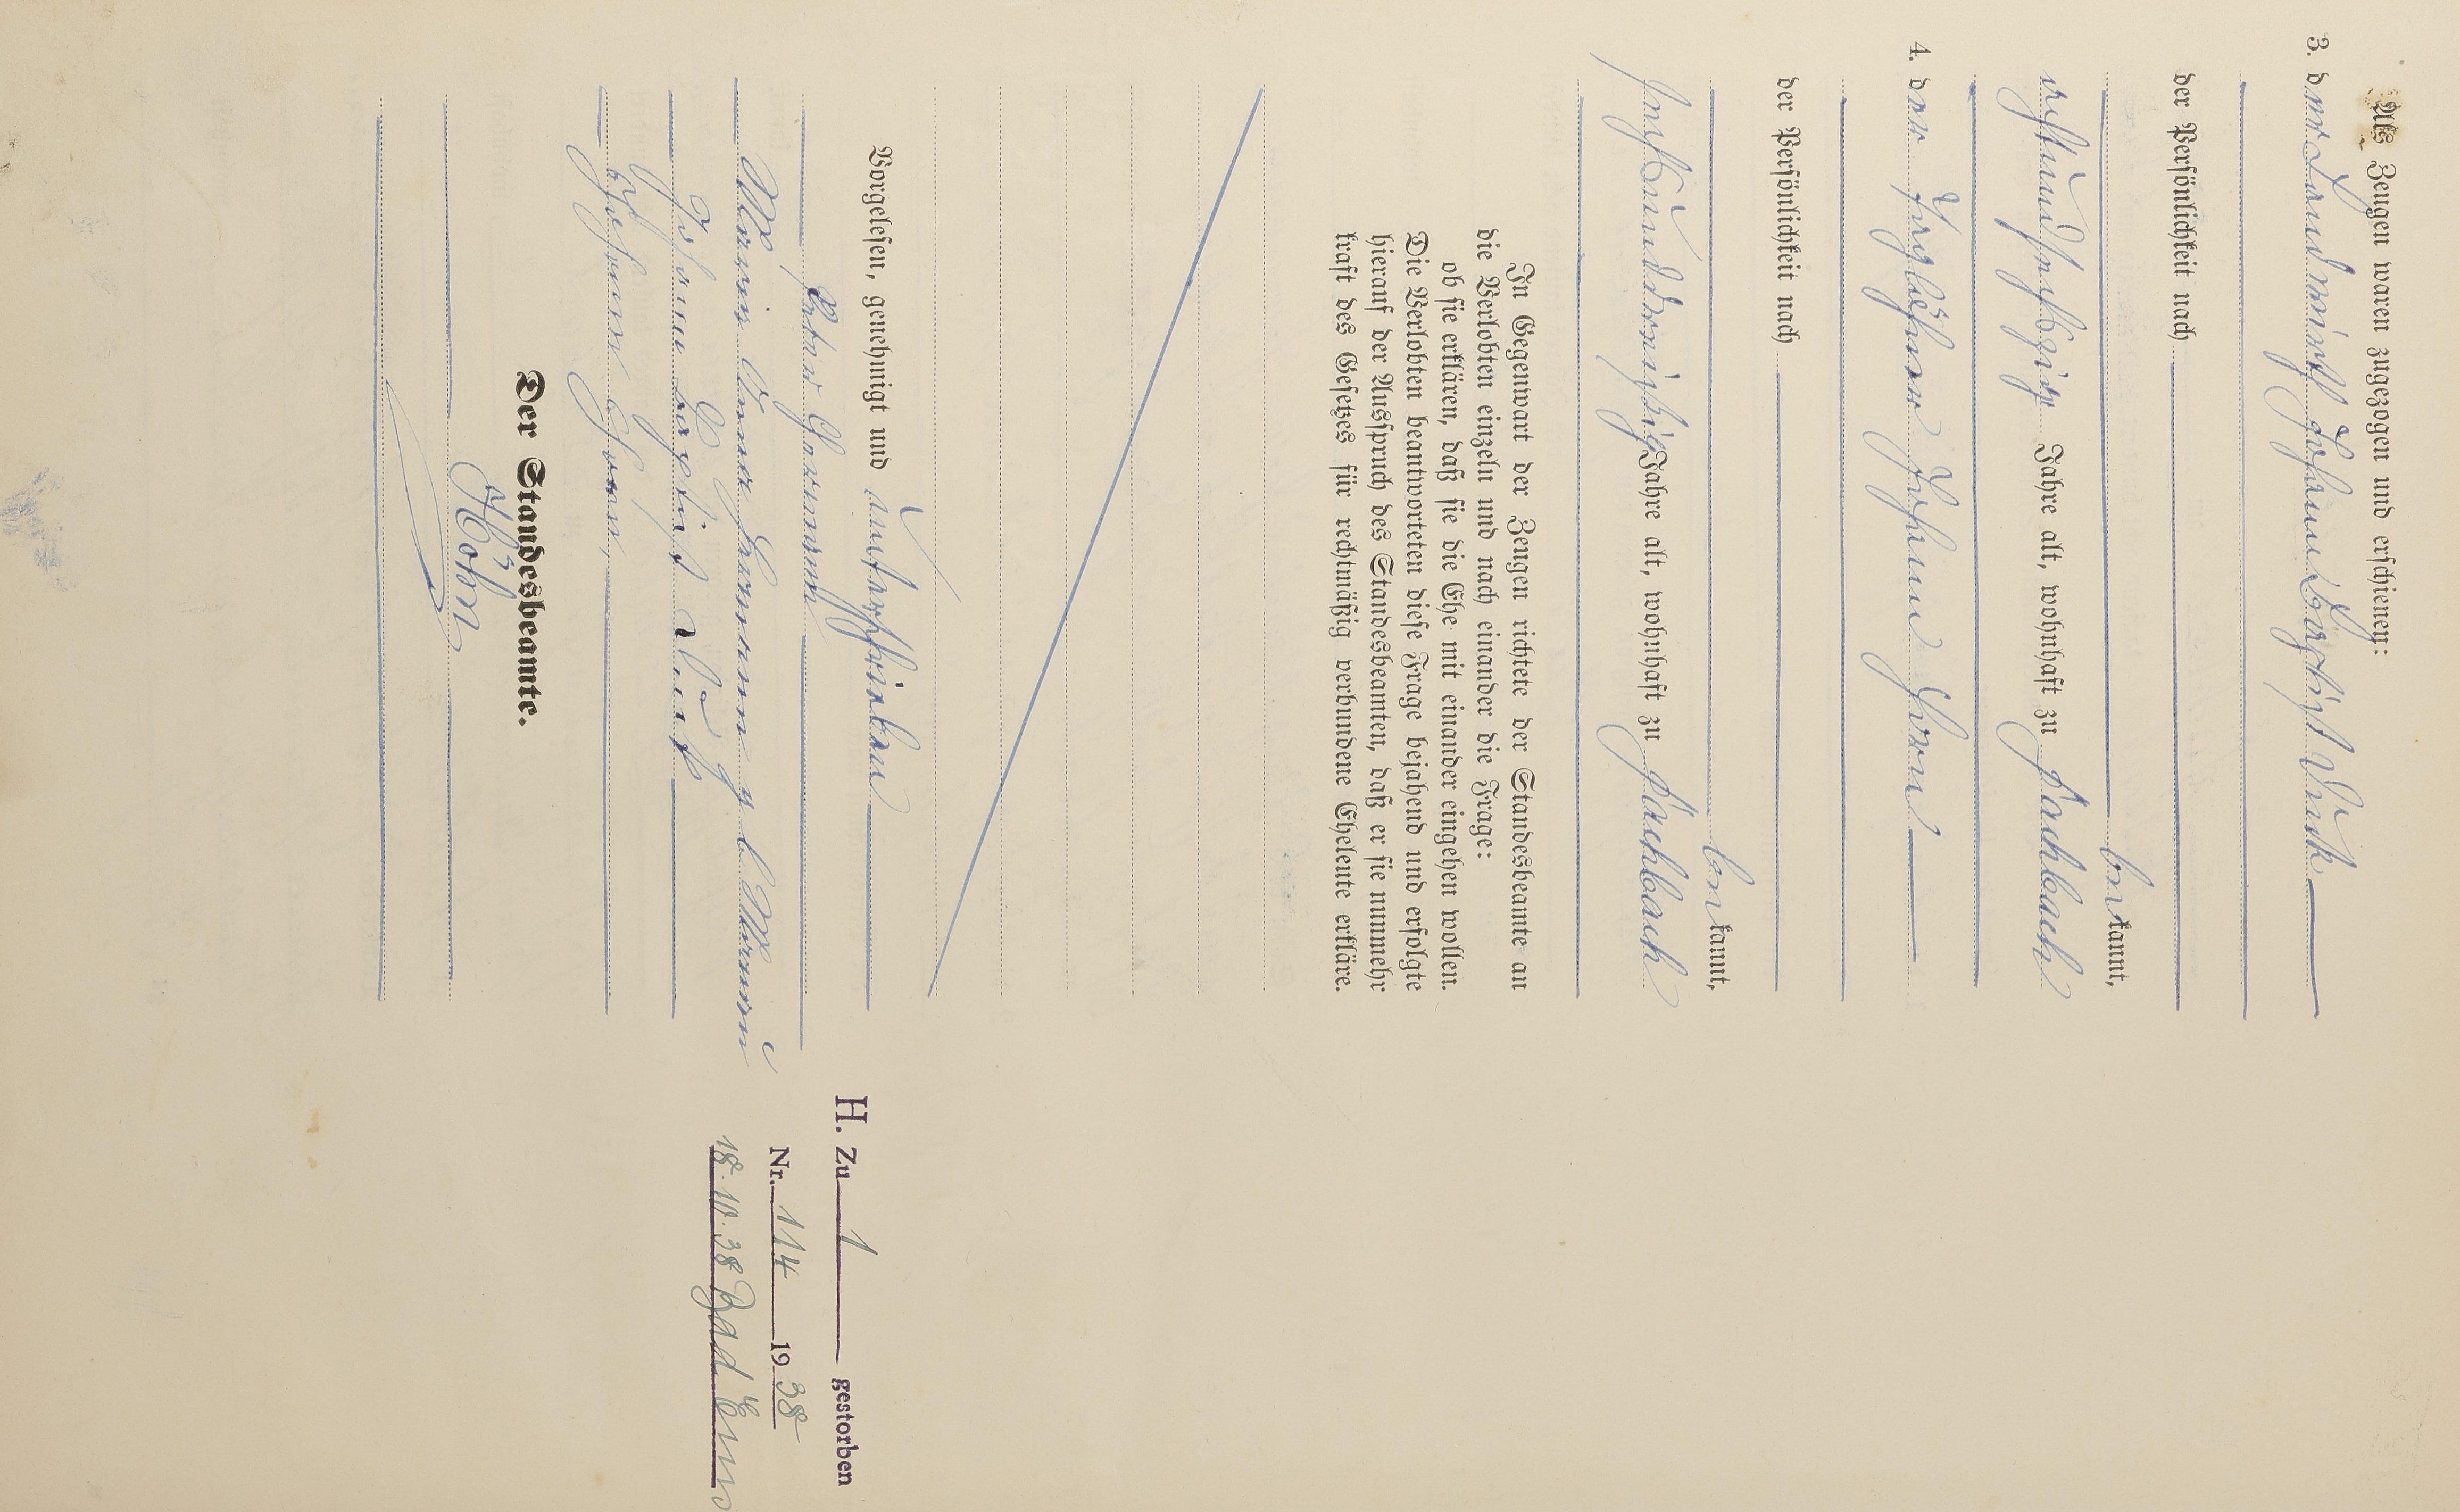 Als Zeugen waren zugezogen und erschienen:
3. der Landwirth Johann Baptist Linck
der Persönlichkeit nach
bekannt,
achtundsechszig Jahre alt, wohnhaft zu Fachbach
4. der Taglöhner Johann Horn
der Persönlichkeit nach
bekannt,
sechsunddreißig Jahre alt, wohnhaft zu Fachbach
In Gegenwart der Zeugen richtete der Standesbeamte an
die Verlobten einzeln und nach einander die Frage:
ob sie erklären, daß sie die Ehe mit einander eingehen wollen.
Die Verlobten beantworteten diese Frage bejahend und erfolgte
hierauf der Ausspruch des Standesbeamten, daß er sie nunmehr
kraft des Gesetzes für rechtmäßig verbundene Eheleute erkläre.
Vorgelesen, genehmigt und unterschrieben
Peter Herrmann
Maria Anna Herrmann geb
Johann Baptist Linck
Johann Horn
Der Standesbeamte.
H. Zu 1 gestorben
Nr. 114 1938
18.10.38 Bad Ems